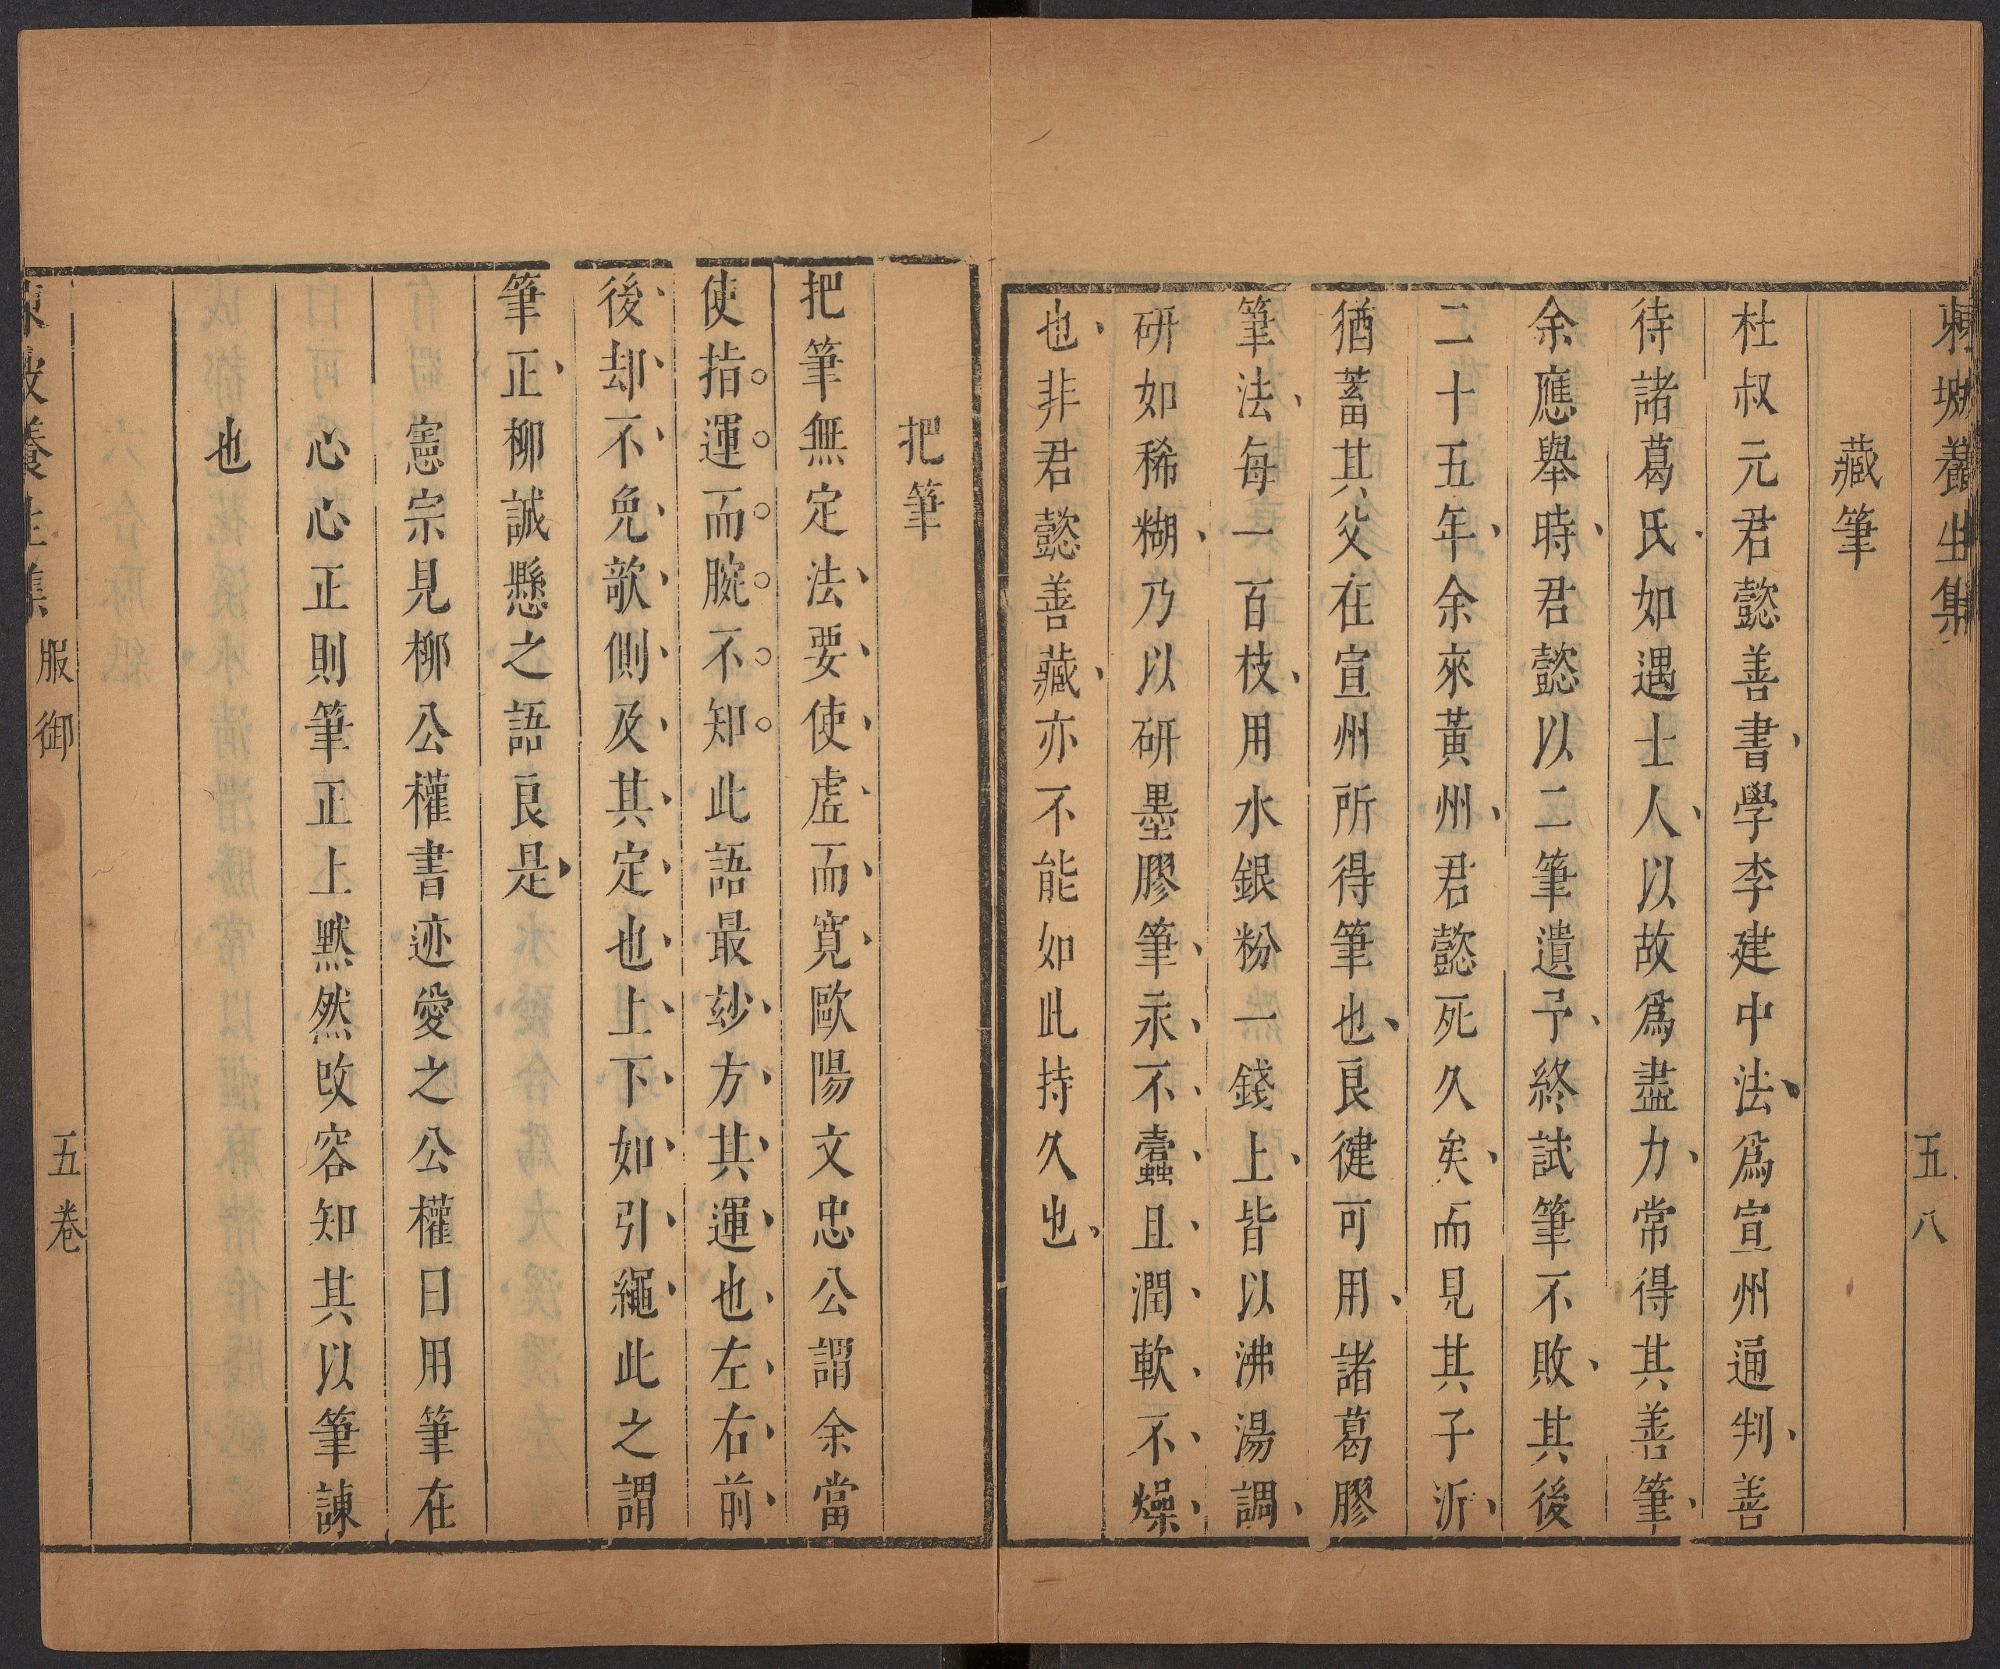 東坡養生集 五 八
藏筆
杜叔元君懿善書學李建中法爲宣州通判善
待諸葛氏如遇士人以故爲盡力常得其善筆
余應舉時君懿以二筆遺予終試筆不敗其後
二十五年余來黃州君懿死久矣而見其子沂
猶蓄其父在宣州所得筆也良健可用諸葛膠
筆法每一百枝用水銀粉一錢上皆以沸湯調
研如稀糊乃以研墨膠筆永不蠹且潤軟不燥
也非君懿善藏亦不能如此持久也
把筆
把筆無定法要使虛而寬歐陽文忠公謂余當
使指運而腕不知此語最玅方其運也左右前
後却不免欹側及其定也上下如引繩此之謂
筆正柳誠懸之語良是
憲宗見柳公權書迹愛之公權曰用筆在
心心正則筆正上默然改容知其以筆諫
也
東坡養生集 服御 五卷